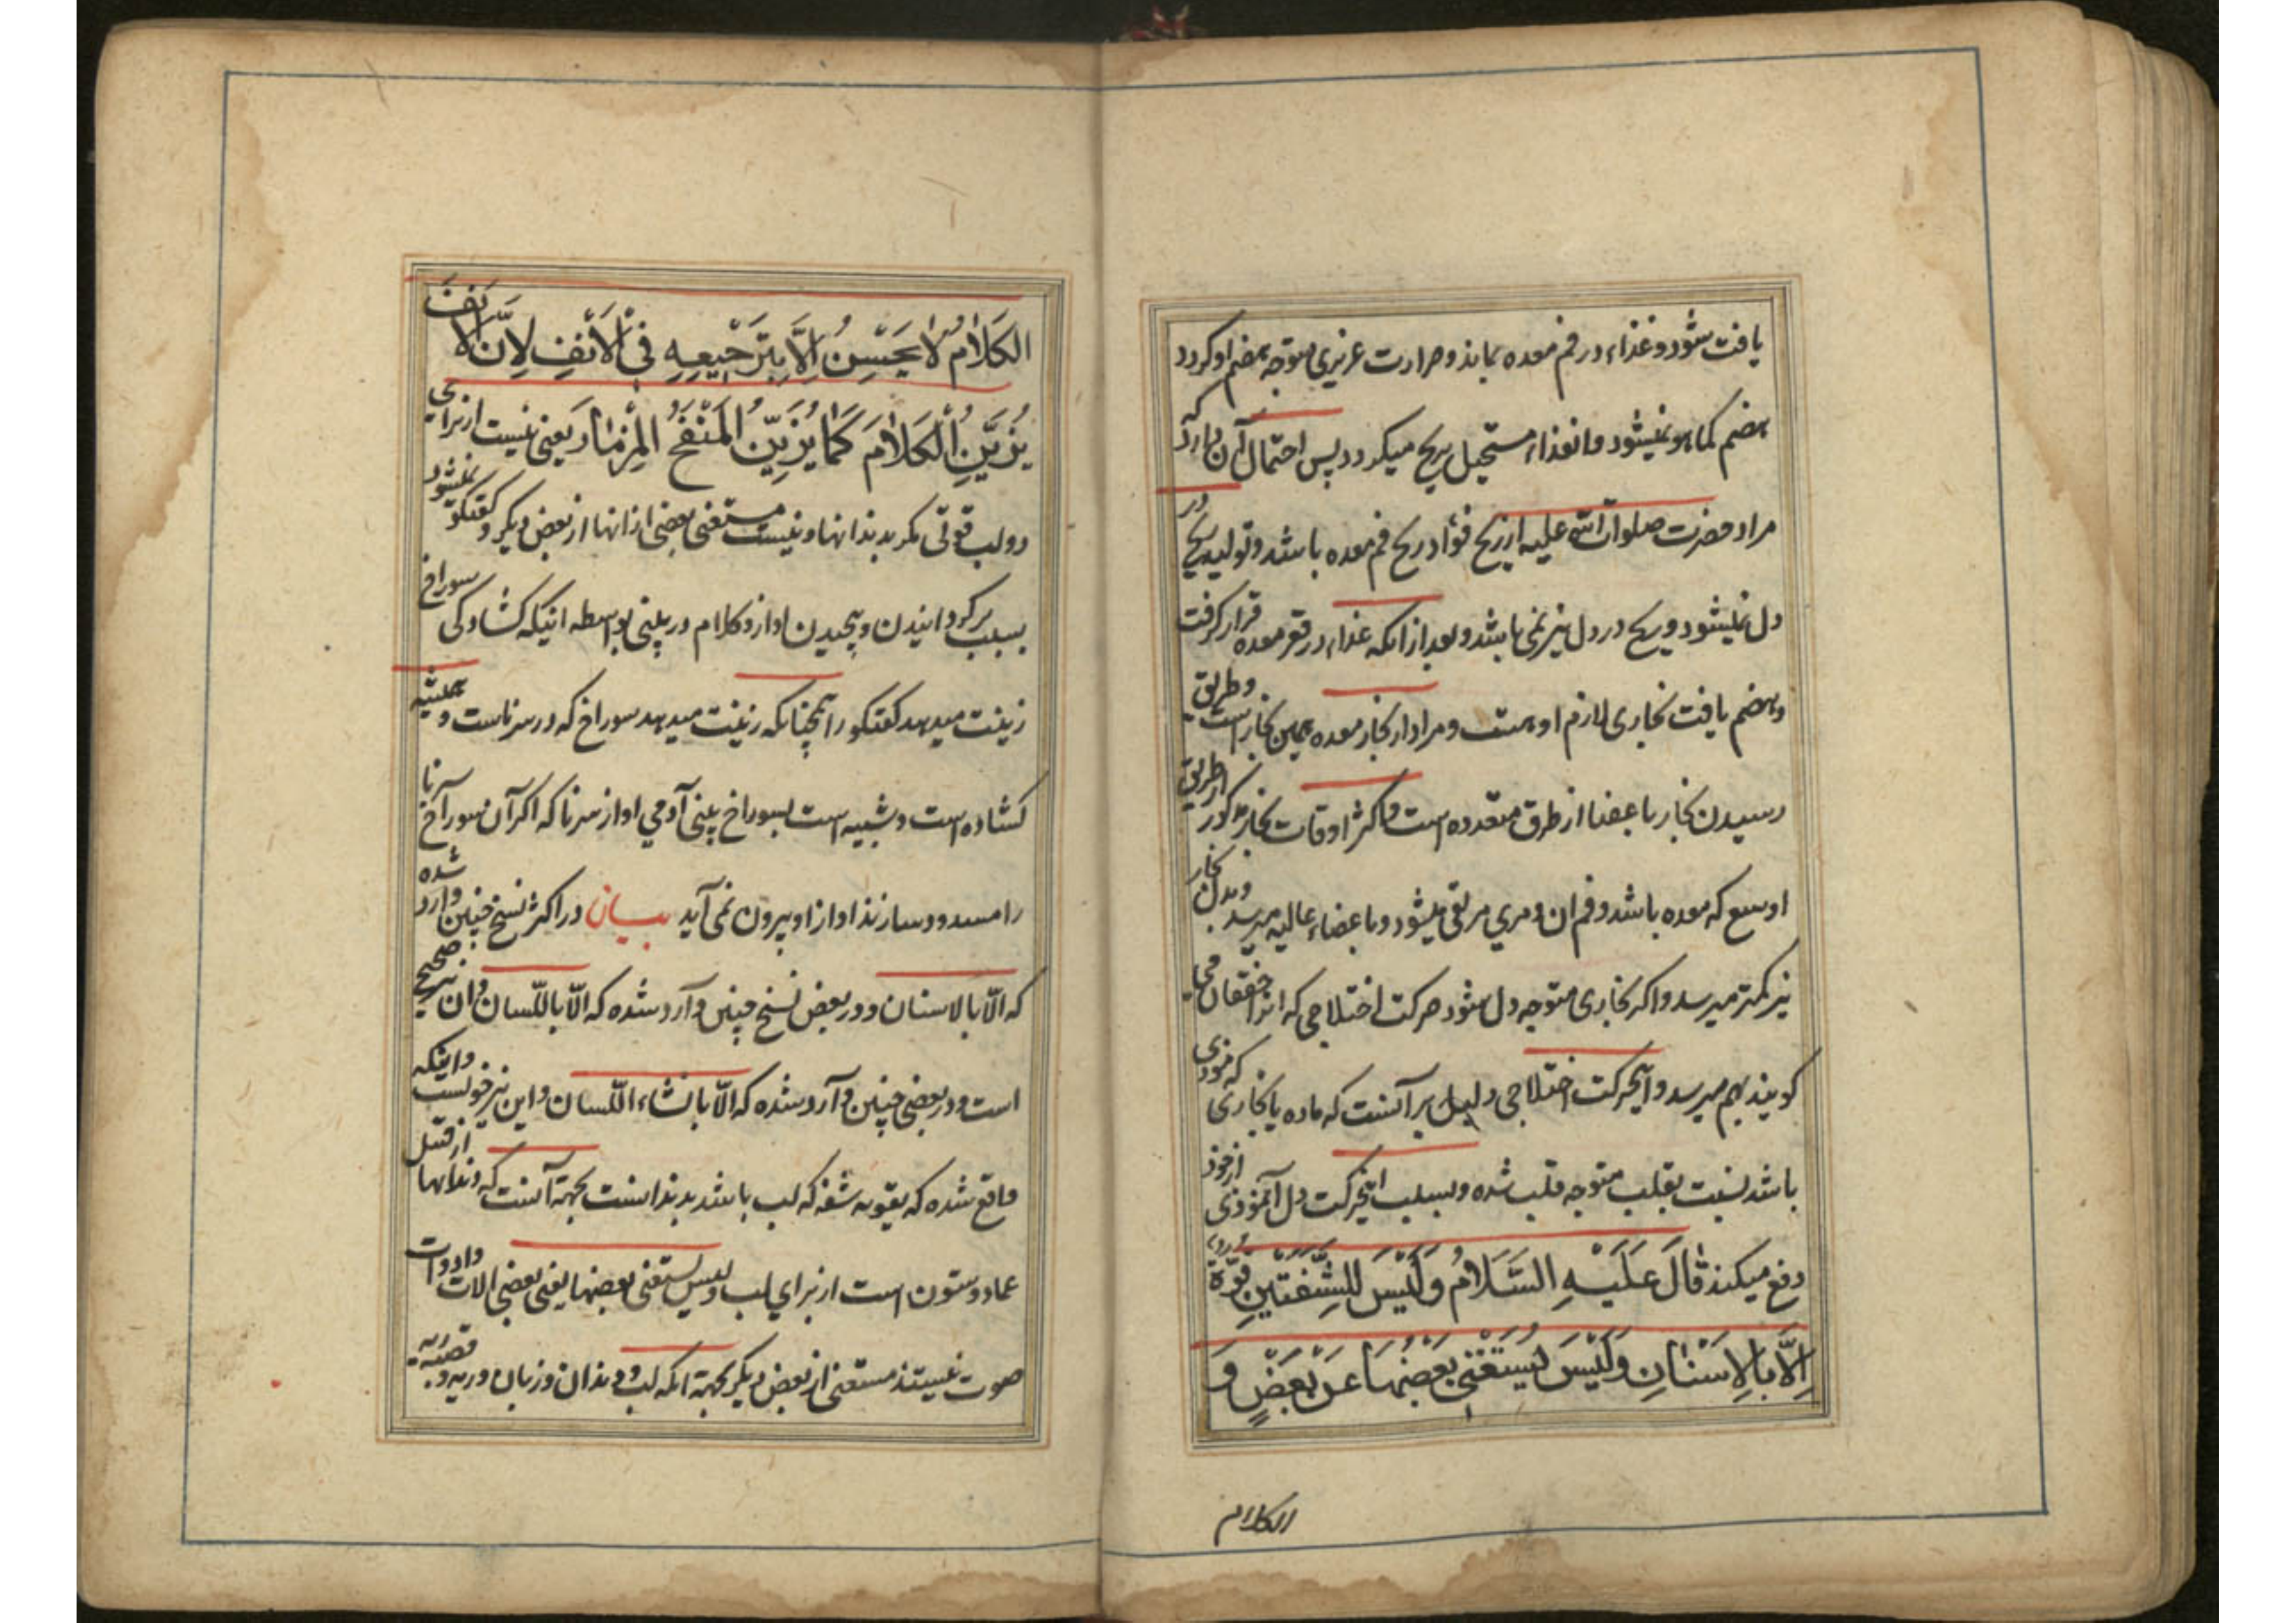 یافت شود و غذاء در فم معده بماند و حرارت غریزی متوجه هضم او کردد
هضم کما هو نمیشود و انغذاء مستحیل بریح میکردد پس احتمال آن دارد که
مراد حضرت صلوات الله علیه از ریح فؤاد ریح فم معده باشد و تولید ریح در
دل نمیشود و ریح در دل نیز نمی باشد و بعد از انکه غذاء در قعر معده قرار کرفت
و هضم یافت بخاری لازم او هست و مراد از بخار معده همین بخار است و طریق
رسیدن بخار باعضا از طرق متعدده است و اکثر اوقات بخار مذکور از طریق
اوسع که معده باشد و فم ان و مری مرتقی میشود و باعضاء عالیه میرسد و بدل بخار
نیز کمتر میرسد و اکر بخاری متوجه دل شود حرکت اختلاجی که انرا خفقان می
کویند بهم میرسد و اینحرکت اختلاجی دلیل بر آنست که ماده یا بخاری که موذی
باشد نسبت بقلب متوجه قلب شده و بسبب اینحرکت دل آنموذی از خود
دفع میکند قَالَ عَلَیْهِ السَّلَامُ وَلَیْسَ لِلشَّفَتَیْنِ قُوَّةٌ
اِلَّا بِالْاَسْنَانِ وَلَیْسَ یَسْتَغْنِی بَعْضُهَا عَنْ بَعْضٍ وَ
الکلام
الکَلَامُ لَا یَحْسِنُ اِلَّا بِتَرْجِیعِهِ فِی الْاَنْفِ لِاَنَّ الْاَنْفَ
یُزَیِّنُ الْکَلَامَ کَمَا یُزَیِّنُ الْمَنْفَخُ الْمِزْمَارَ یعنی نیست از برای
دو لب قوتی مکر بدندانها و نیست مستغنی بعضی از انها از بعض دیکر و کفتکو نمیشود
بسبب برکردانیدن و پیچیدن اواز و کلام در بینی بواسطه اینکه کشادکی سوراخ
زینت میدهد کفتکو را همچنانکه زینت میدهد سوراخ که در سرناست و همیشه
کشاده است و شبیه است بسوراخ بینی آدمی اواز سرنا که اکر آن سوراخ سرنا
را مسدود سازند اواز او بیرون نمی آید بیان در اکثر نسخ چنین وارد شده
که الّا بالاسنان و در بعض نسخ چنین وارد شده که الّا باللّسان و ان نیز صحیح
است و در بعضی چنین وارد شده که الّا بانشاء اللّسان و این نیز خوبست و اینکه
واقع شده که تقویه شفه که لب باشد بدندانست بجهة آنست که دندانها از قبل
عماد و ستون است از برای لب و لیس یستغنی بعضها یعنی بعضی الات و ادوات
صوت نیستند مستغنی از بعض دیکر بجهة انکه لب و دندان و زبان و ریه و قصبه